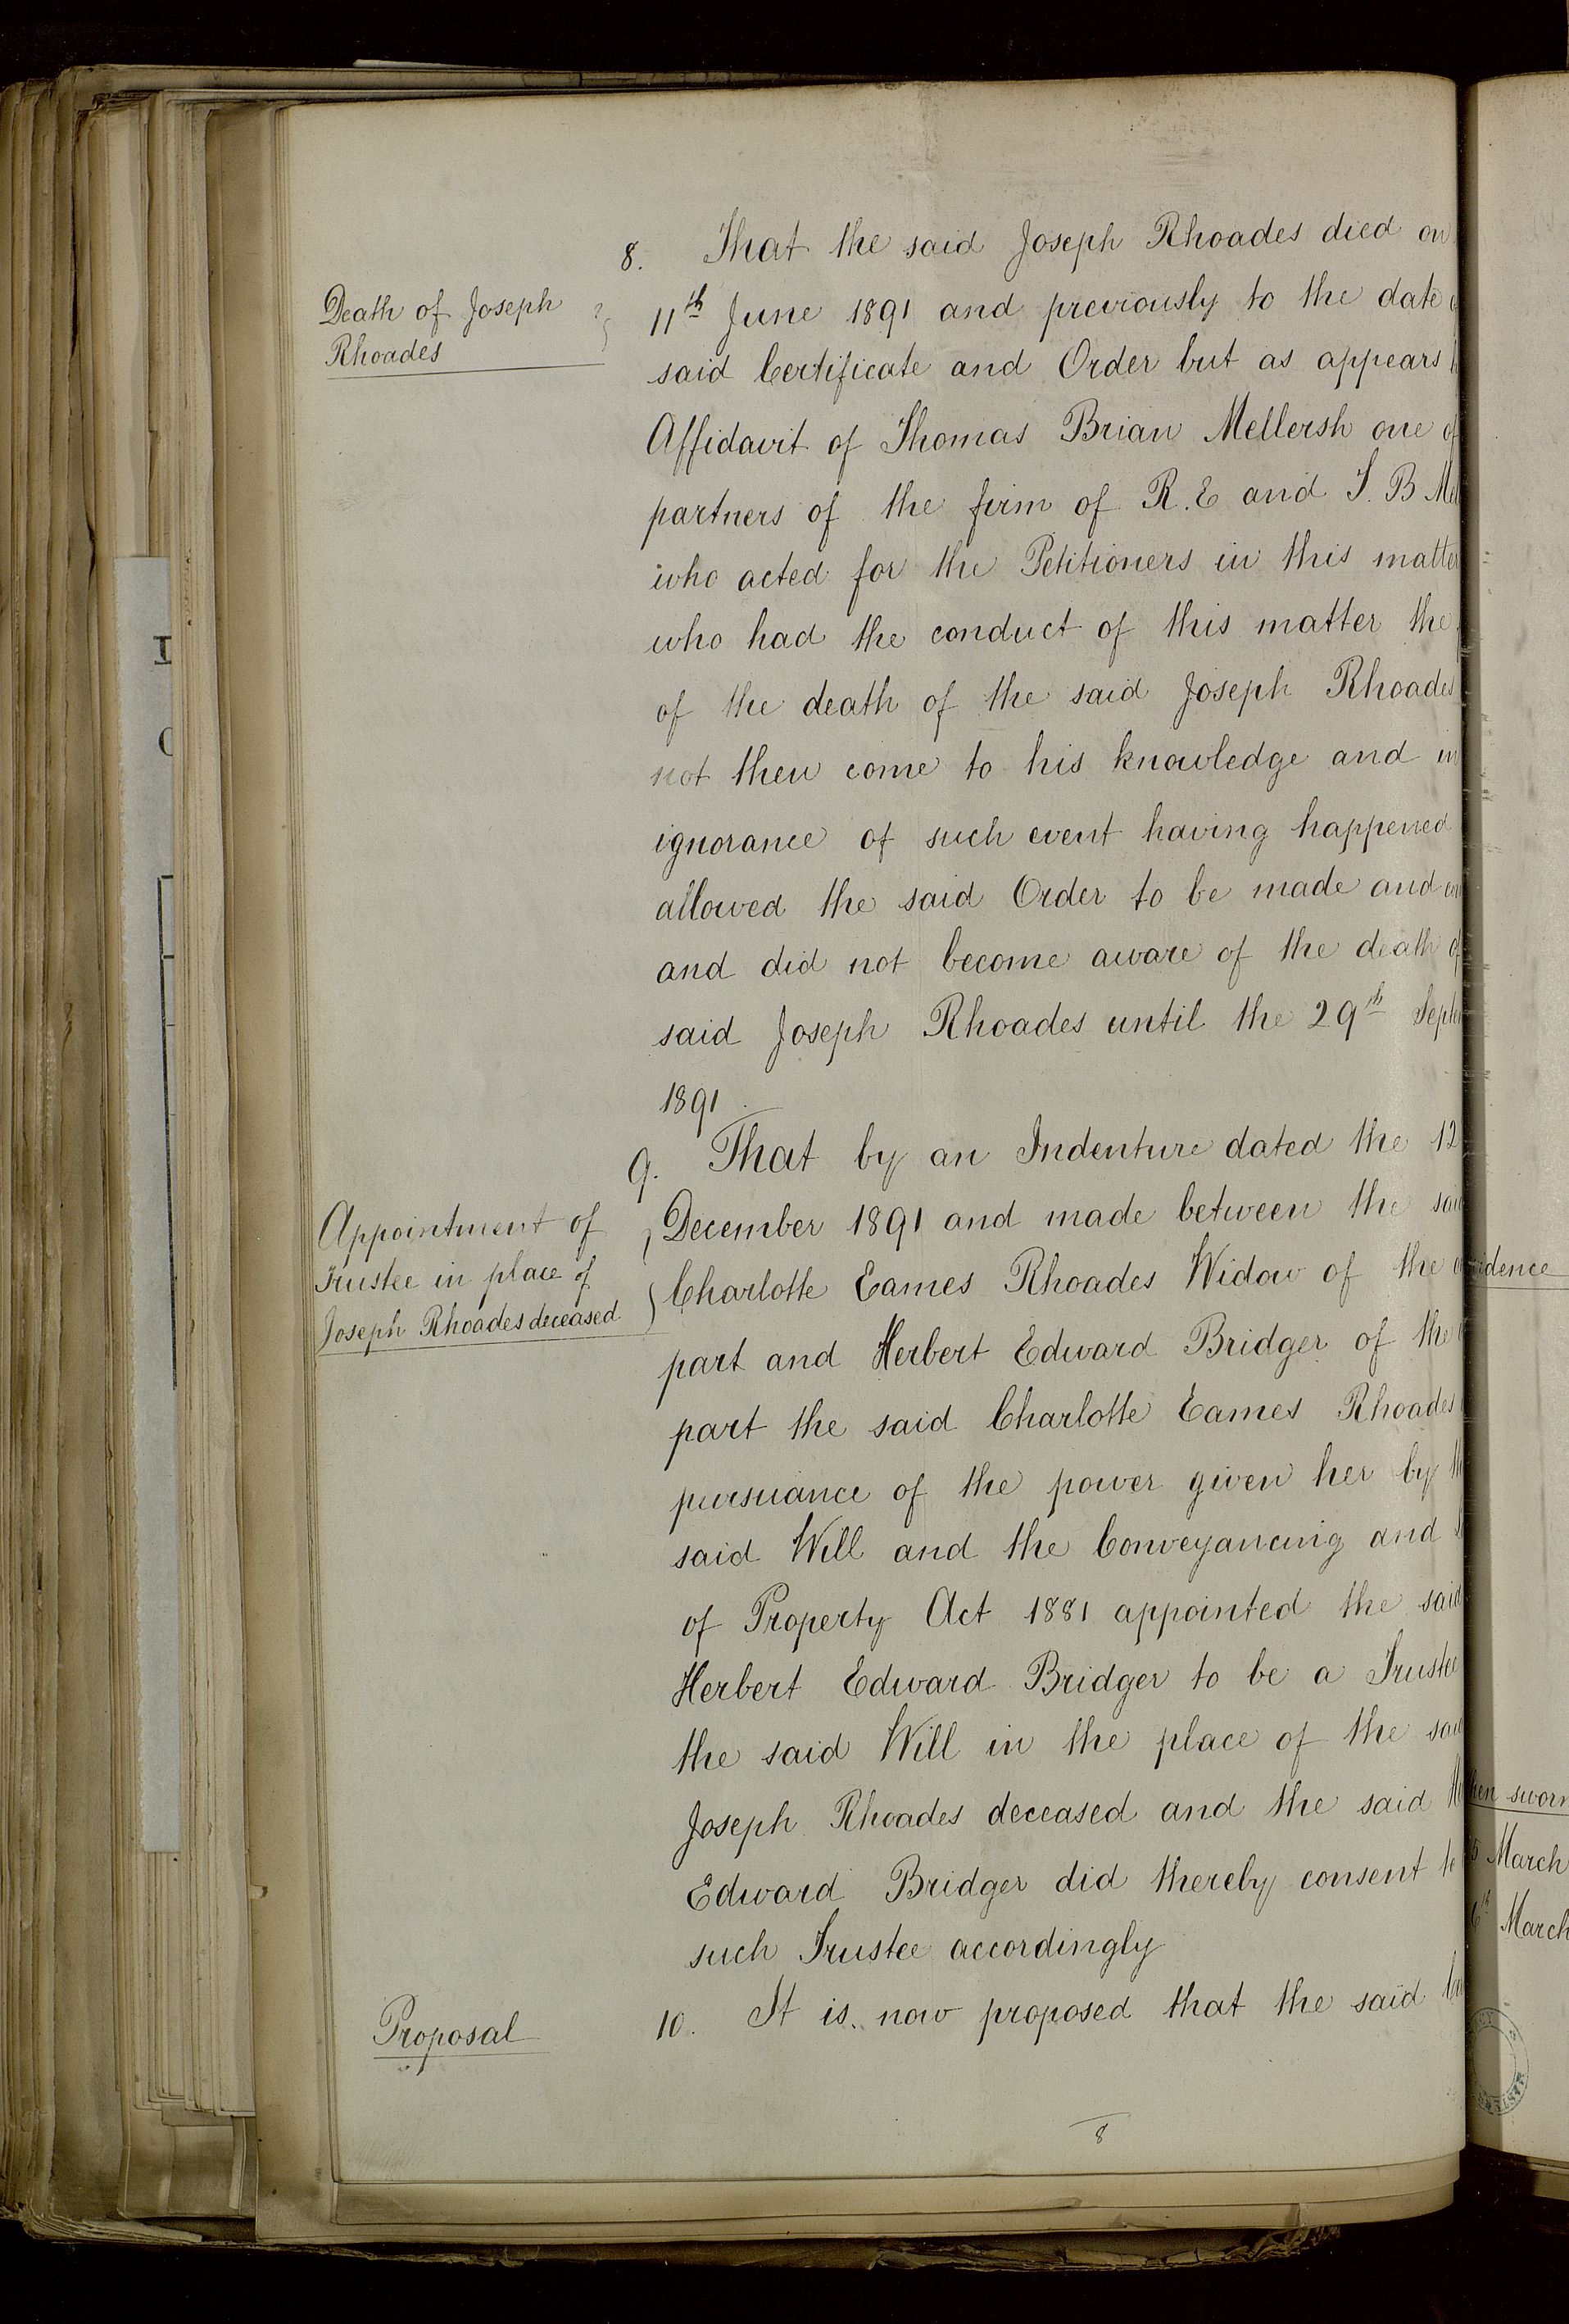 8. That the said Joseph Rhoades died on
Death of Joseph
Rhoades
11th June 1891 and previously to the date
said Certificate and Order but as appears
Affidavit of Thomas Brian Mellersh one of
partners of the firm of R. E and T. B Mel
who acted for the Petitioners in this matter
who had the conduct of this matter the
of the death of the said Joseph Rhoades
not then come to his knowledge and in
ignorance of such event having happened
allowed the said Order to be made and
and did not become aware of the death of
said Joseph Rhoades until the 29th Septe
1891
9. That by an Indenture dated the 12
Appointment of
Trustee in place of
Joseph Rhoades deceased
December 1891 and made between the said
Charlotte Eames Rhoades Widow of the
part and Herbert Edward Bridger of the
part the said Charlotte Eames Rhoades
pursuance of the power given her by the
said Will and the Conveyancing and
of Property Act 1881 appointed the said
Herbert Edward Bridger to be a Trustee
the said Will in the place of the said
Joseph Rhoades deceased and the said
Edward Bridger did thereby consent to
such Trustee accordingly
Proposal
10. It is now proposed that the said
8
idence
hen sworn
5 March
6th March